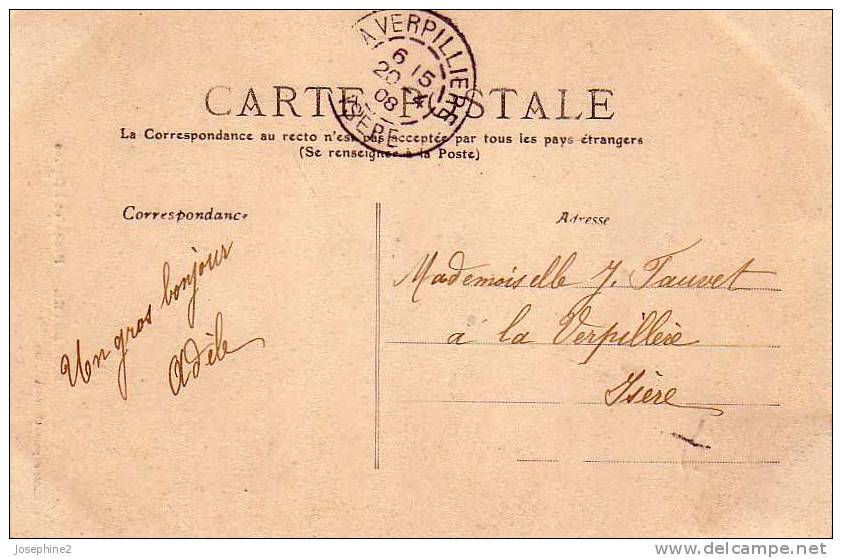 LA VERPILLIERE
6 15
20 - 4
08
ISERE
CARTE POSTALE
La Correspondance au recto n'est pas acceptée par tous les pays étrangers
(Se renseigner à la Poste)
Correspondance
Un gros bonjour
Adèle
Adresse
Mademoiselle J. Fauvet
à la Verpillère
Isère
Josephine2
delcampe.net